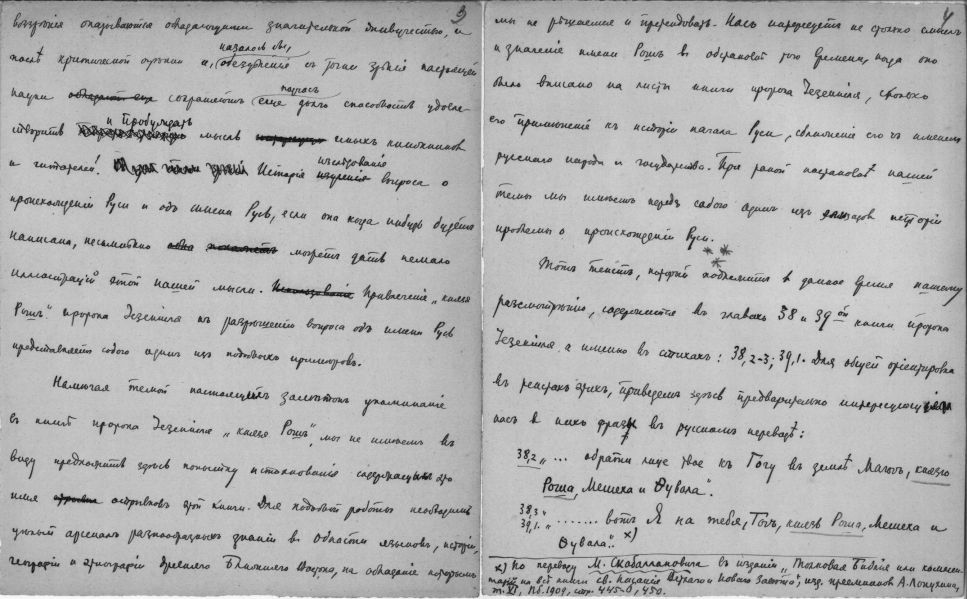 3
воззрѣнія оказываются обладающими значительной живучестью, и
казалось бы,
послѣ критической оцѣнки и, обезцѣненіе съ точки зрѣнія настоящей
подчасъ
науки сохраняютъ еще долго способность удовле-
и пробуждать
творить мысль иныхъ книжниковъ
изслѣдованія
и читателей. Исторія изученія вопроса о
происхожденіи Руси и объ имени Русь, если она когда нибудь будетъ
написана, несомнѣнно можетъ дать немало
иллюстрацій этой нашей мысли. Привлеченіе „князя
Рошъ" пророка Іезекіиля къ разрѣшенію вопроса объ имени Русь
представляетъ собою одинъ изъ подобныхъ примѣровъ.
Намѣчая темой настоящихъ замѣтокъ упоминаніе
въ книгѣ пророка Іезекіиля „князя Рошъ", мы не имѣемъ въ
виду предложить здѣсь попытку истолкованія содержащихъ это
имя отрывковъ этой книги. Для подобной работы необходимъ
цѣлый арсеналъ разнообразныхъ знаній въ области языковъ, исторіи,
географіи и этнографіи древняго Ближняго Востока, на обладаніе которымъ
4
мы не рѣшаемся и претендовать. Насъ интересуетъ не столько смыслъ
и значеніе имени Рошъ въ обстановкѣ того времени, когда оно
было вписано на листы книги пророка Іезекіиля, сколько
его примѣненіе къ исторіи начала Руси, сближеніе его съ именемъ
русскаго народа и государства. При такой постановкѣ нашей
темы мы имѣемъ передъ собою одинъ изъ эпизодовъ исторіи
проблемы о происхожденіи Руси.
* * *
Тотъ текстъ, который подлежитъ въ данное время нашему
разсмотрѣнію, содержится въ главахъ 38 и 39ой книги пророка
Іезекіиля, а именно въ стихахъ: 38,2-3; 39,1. Для общей оріентировки
въ текстахъ этихъ, приведемъ здѣсь предварительно интересующія
насъ въ нихъ фразы въ русскомъ переводѣ:
38,2 „... обрати лице твое къ Гогу въ землѣ Магогъ, князю
Роша, Мешеха и Ѳувала".
38,3 „
39,1. „ ....... вотъ Я на тебя, Гогъ, князь Роша, Мешеха и
Ѳувала". х)
х) По переводу М. Скабаллановича въ изданіи „Толковая Библія или коммен-
тарій на всѣ книги св. писанія Ветхаго и Новаго Завѣта", изд. преемниковъ А. Лопухина,
т. VI, Пб. 1909, стр. 445-6, 450.